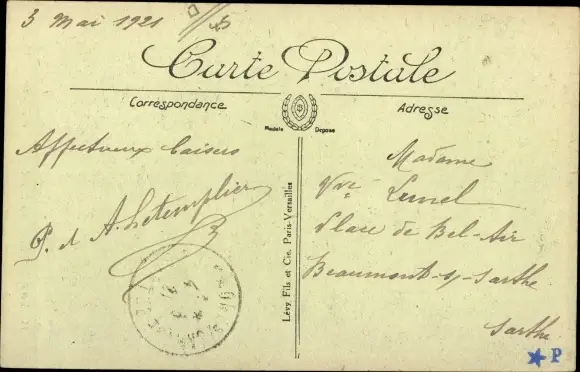 3 Mai 1921
Carte Postale
Correspondance
Adresse
Modèle Déposé
Affectueux Baisers
P. et A. Letemplier
Lévy, Fils et Cie, Paris-Versailles
Madame
Vve Lunel
Place de Bel-Air
Beaumont-s/-Sarthe
Sarthe
P